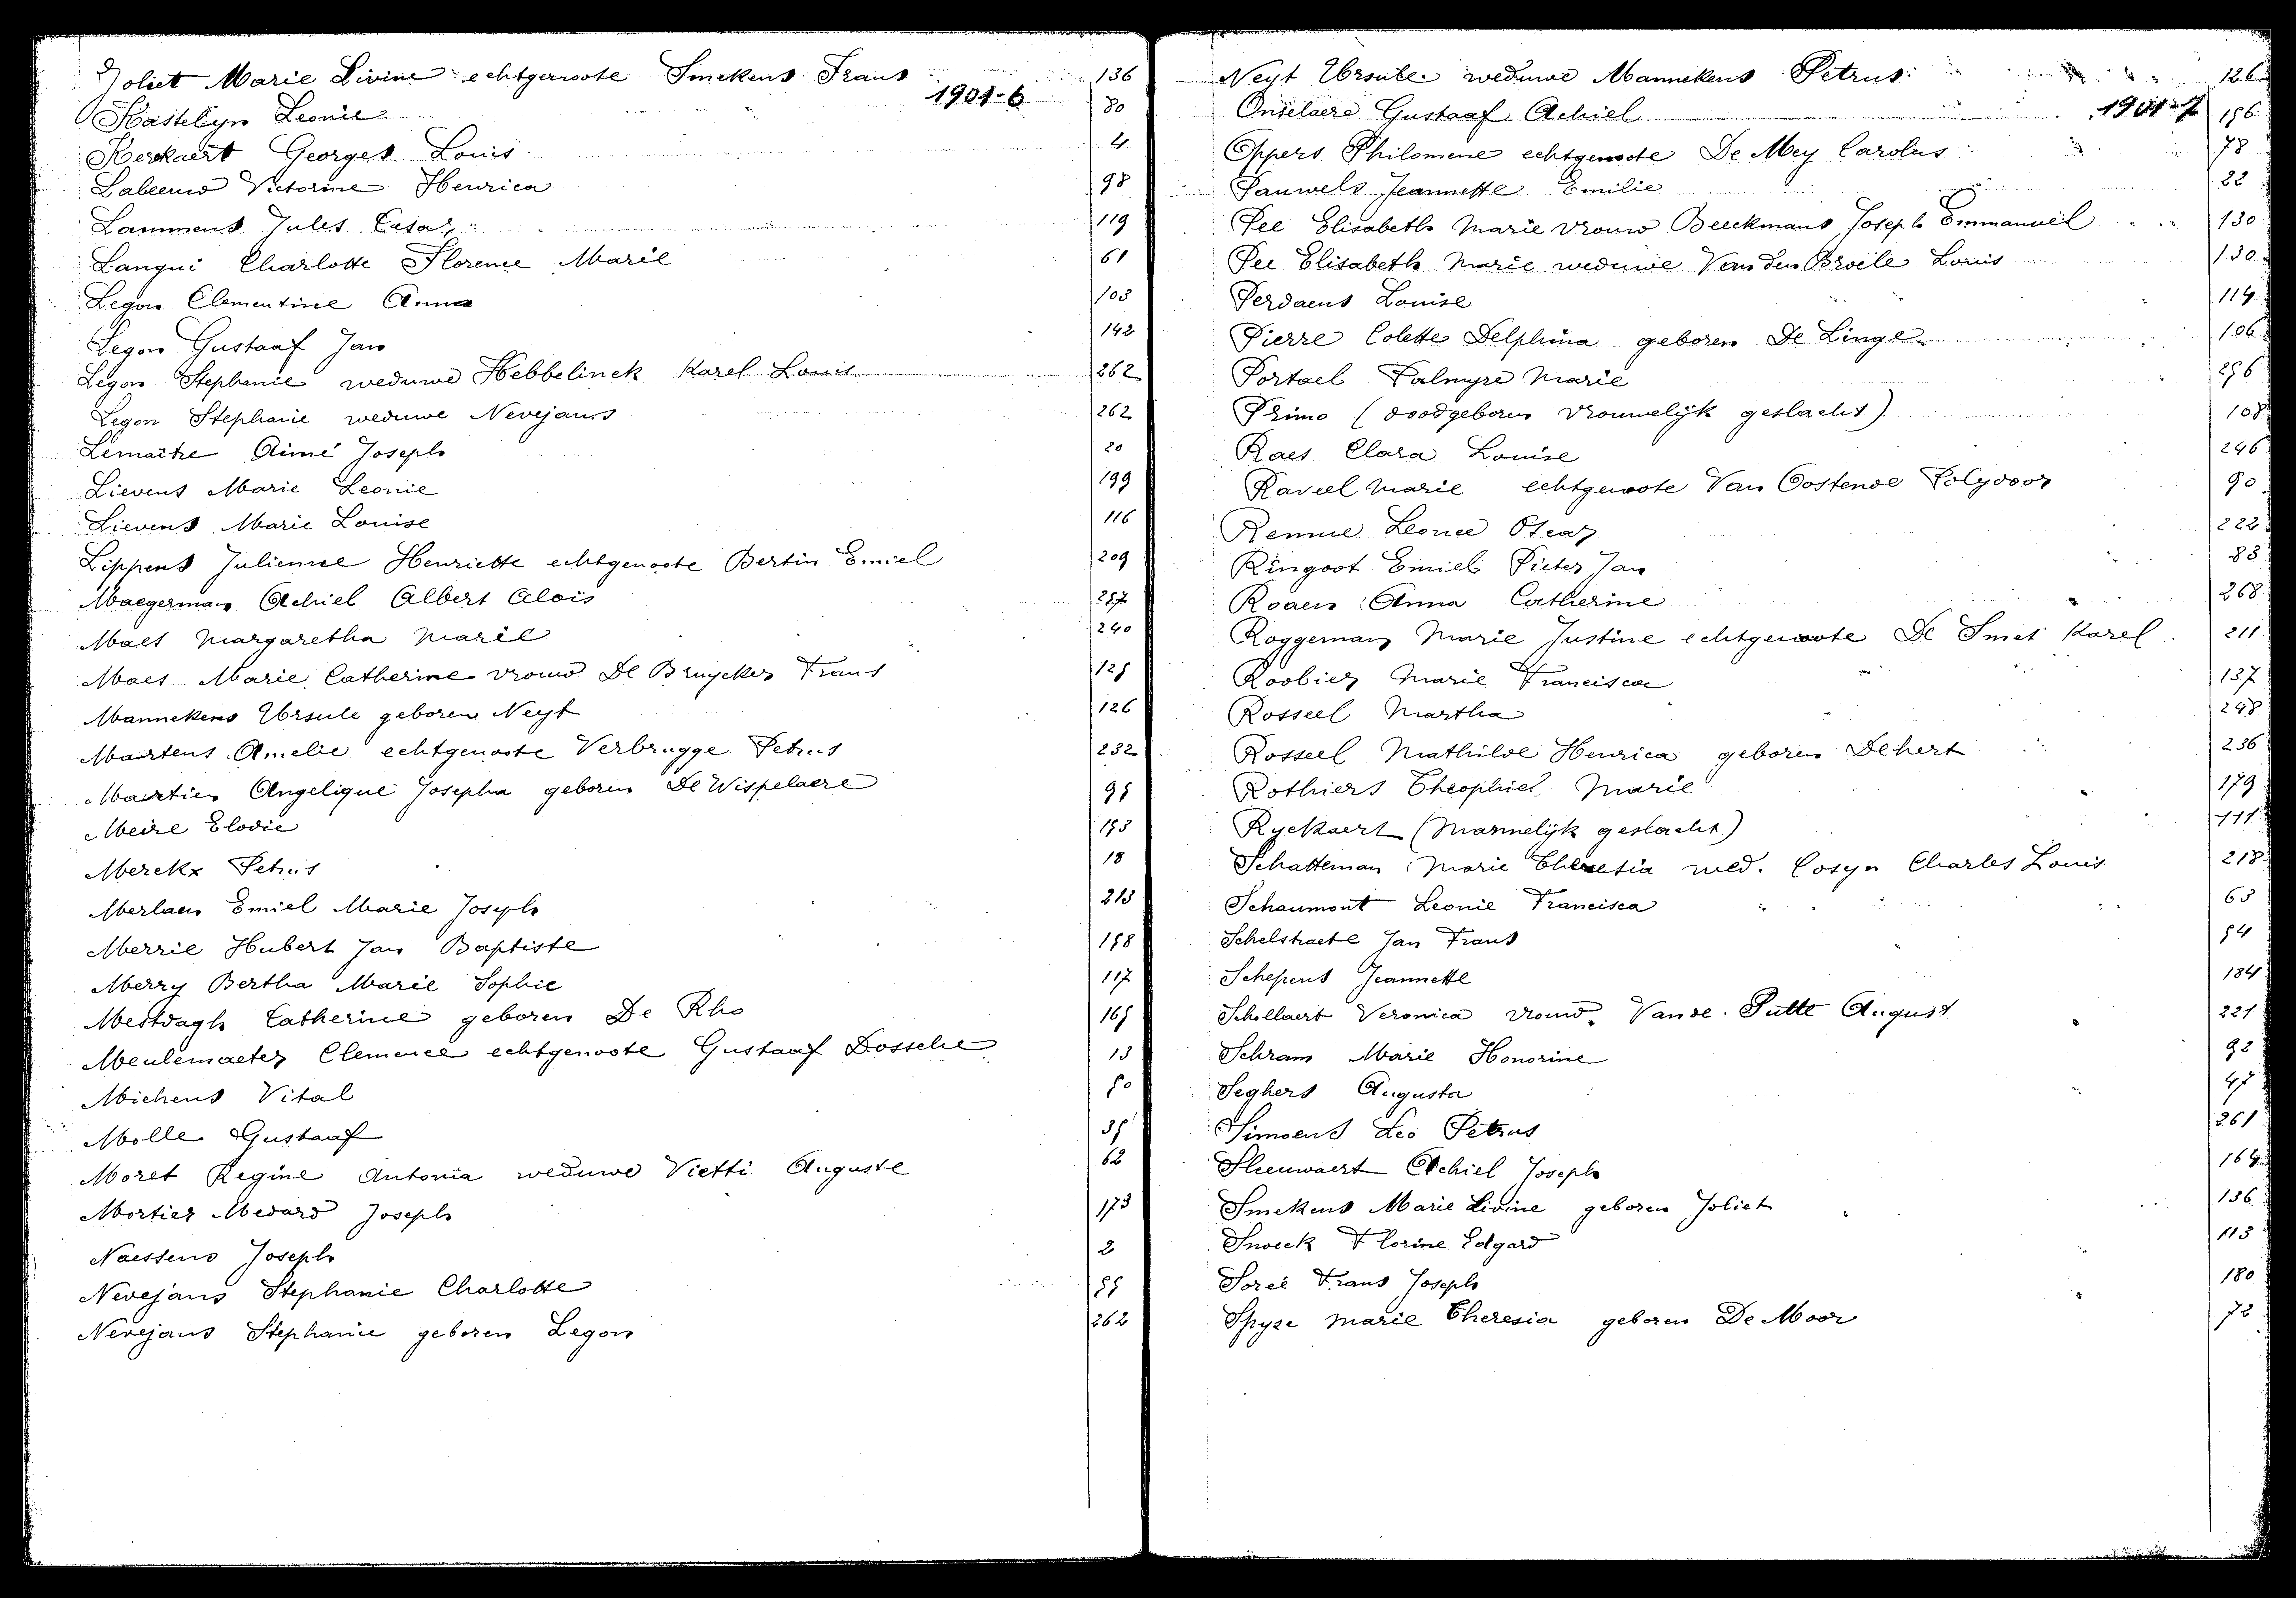 Joliet Marie Livine echtgenoote Smekens Frans 136
1901-6
Kastelyn Leonie 80
Kerckaert Georges Louis 4
Labeeuw Victorine Henrica 98
Lammens Jules Cesar 119
Langui Charlotte Florence Marie 61
Legon Clementine Anna 103
Legon Gustaaf Jan 142
Legon Stephanie weduwe Hebbelinck Karel Louis 262
Legon Stephanie weduwe Nevejans 262
Lemaître Aimé Joseph 20
Lievens Marie Leonie 199
Lievens Marie Louise 116
Lippens Julienne Henriette echtgenoote Bertin Emiel 209
Maegerman Achiel Albert Aloïs 257
Maes Margaretha Marie 240
Maes Marie Catherine vrouw De Bruycker Frans 125
Mannekens Ursule geboren Neyt 126
Martens Amelie echtgenoote Verbrugge Petrus 232
Martien Angelique Josepha geboren De Wispelaere 95
Meire Elodie 153
Merckx Petrus 18
Merlaen Emiel Marie Joseph 213
Merrie Hubert Jan Baptiste 158
Merry Bertha Marie Sophie 117
Mestdagh Catherine geboren De Rho 165
Meulemaeter Clemence echtgenoote Gustaaf Dossche 13
Michens Vital 50
Molle Gustaaf 35
Moret Regine Antonia weduwe Vietti Auguste 62
Mortier Medard Joseph 173
Naessens Joseph 2
Nevejans Stephanie Charlotte 55
Nevejans Stephanie geboren Legon 262
Neyt Ursule weduwe Mannekens Petrus 126
1901-7
Onselaere Gustaaf Achiel 156
Oppers Philomene echtgenoote De Mey Carolus 78
Pauwels Jeannette Emilie 22
Pee Elisabeth Marie vrouw Beeckmans Joseph Emmanuel 130
Pee Elisabeth Marie weduwe Van den Broele Louis 130
Perdaens Louise 114
Pierre Colette Delphina geboren De Linge 106
Portael Palmyre Marie 256
Primo (doodgeboren vrouwelijk geslacht) 108
Raes Clara Louise 246
Raveel Marie echtgenoote Van Oostende Polydoor 90
Remue Leonce Oscar 222
Ringoot Emiel Pieter Jan 83
Roaen Anna Catherine 268
Roggeman Marie Justine echtgenoote De Smet Karel 211
Roobier Marie Francisca 137
Rosseel Martha 248
Rosseel Mathilde Henrica geboren Dehert 236
Rothiers Theophiel Marie 179
Ryckaert (Mannelijk geslacht) 111
Schatteman Marie Theresia wed. Cosyn Charles Louis 218
Schaumont Leonie Francisca 63
Schelstraete Jan Frans 54
Schepens Jeannette 184
Schollaert Veronica vrouw Vande Putte August 221
Schram Marie Honorine 92
Seghers Augusta 47
Simoens Leo Petrus 261
Sleeuwaert Achiel Joseph 164
Smekens Marie Livine geboren Joliet 136
Snoeck Florine Edgard 113
Soreé Frans Joseph 180
Spyse Marie Theresia geboren De Moor 72